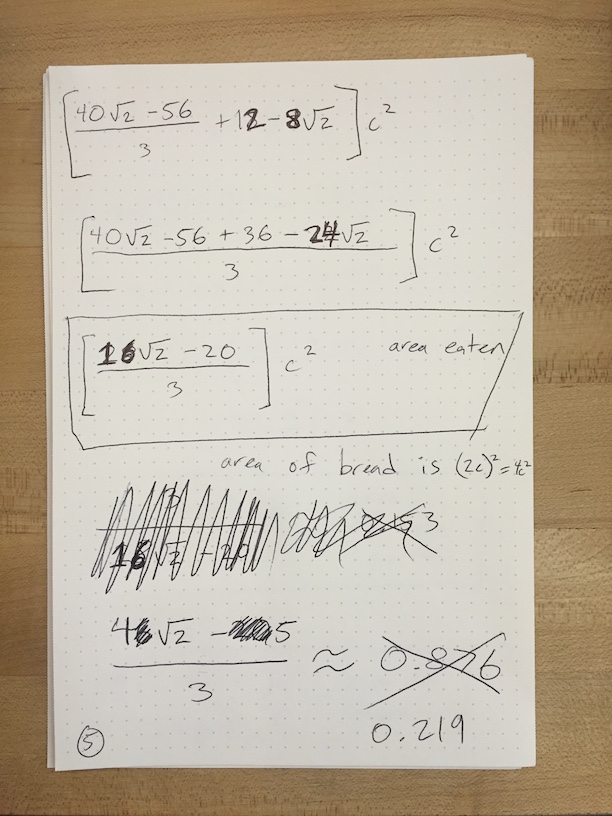 [(40√2 - 56)/3 + 12 - 8√2] c²
[(40√2 - 56 + 36 - 24√2)/3] c²
[(16√2 - 20)/3] c² area eaten
area of bread is (2c)² = 4c²
16√2 - 20
(4√2 - 5)/3 ≈ 0.876
0.219
5